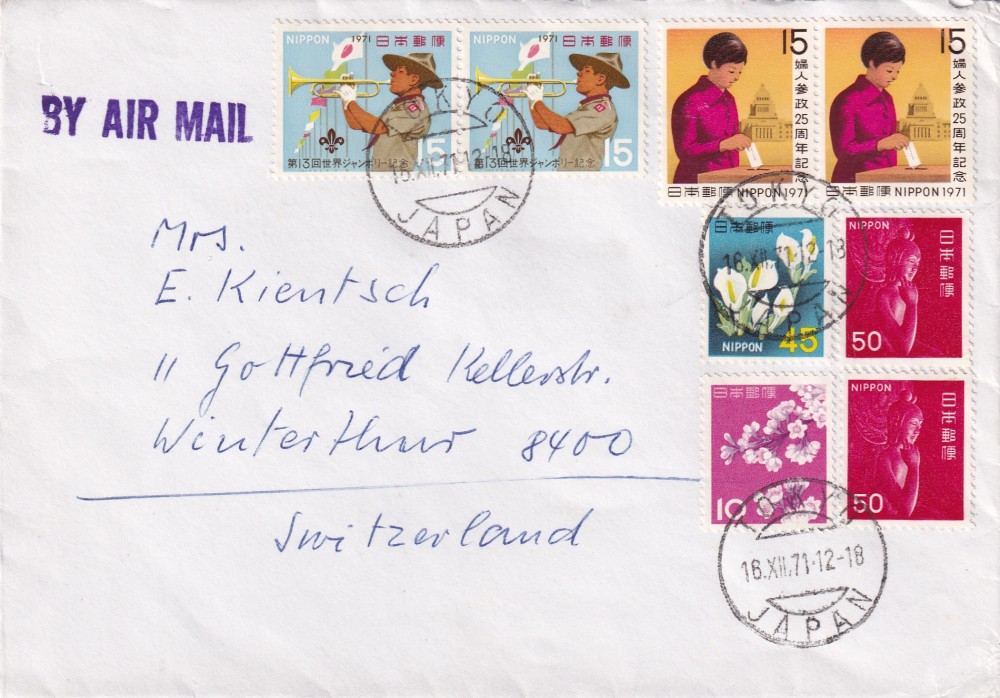 BY AIR MAIL
NIPPON 1971 日本郵便
15
第13回世界ジャンボリー記念
NIPPON 1971 日本郵便
15
第13回世界ジャンボリー記念
15
婦人参政25周年記念
日本郵便 NIPPON 1971
15
婦人参政25周年記念
日本郵便 NIPPON 1971
TOKYO
18.XII.71.12-18
JAPAN
日本郵便
NIPPON 45
NIPPON
日本郵便
50
TOKYO
18.XII.71.12-18
JAPAN
日本郵便
10
NIPPON
日本郵便
50
TOKYO
18.XII.71.12-18
JAPAN
Mrs.
E. Kientsch
11 Gottfried Kellerstr.
Winterthur 8400
Switzerland